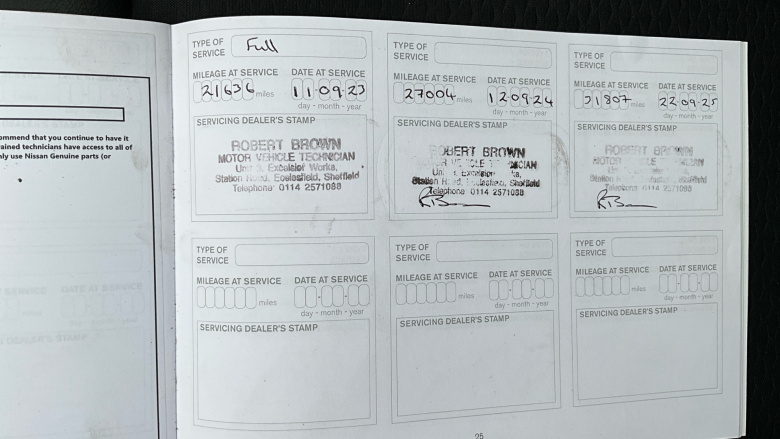 ommend that you continue to have it
rained technicians have access to all of
nly use Nissan Genuine parts (or
TYPE OF SERVICE Full
MILEAGE AT SERVICE DATE AT SERVICE
21636 miles 11-09-23
day - month - year
SERVICING DEALER'S STAMP
ROBERT BROWN
MOTOR VEHICLE TECHNICIAN
Unit 3, Excelsior Works,
Station Road, Ecclesfield, Sheffield
Telephone 0114 2571088
TYPE OF SERVICE
MILEAGE AT SERVICE DATE AT SERVICE
27004 miles 12-09-24
day - month - year
SERVICING DEALER'S STAMP
ROBERT BROWN
Telephone 0114 2571088
TYPE OF SERVICE
MILEAGE AT SERVICE DATE AT SERVICE
31807 miles 22-09-25
day - month - year
SERVICING DEALER'S STAMP
ROBERT BROWN
Telephone 0114 2571088
TYPE OF SERVICE
MILEAGE AT SERVICE DATE AT SERVICE
miles
day - month - year
SERVICING DEALER'S STAMP
TYPE OF SERVICE
MILEAGE AT SERVICE DATE AT SERVICE
miles
day - month - year
SERVICING DEALER'S STAMP
TYPE OF SERVICE
MILEAGE AT SERVICE DATE AT SERVICE
miles
day - month - year
SERVICING DEALER'S STAMP
25